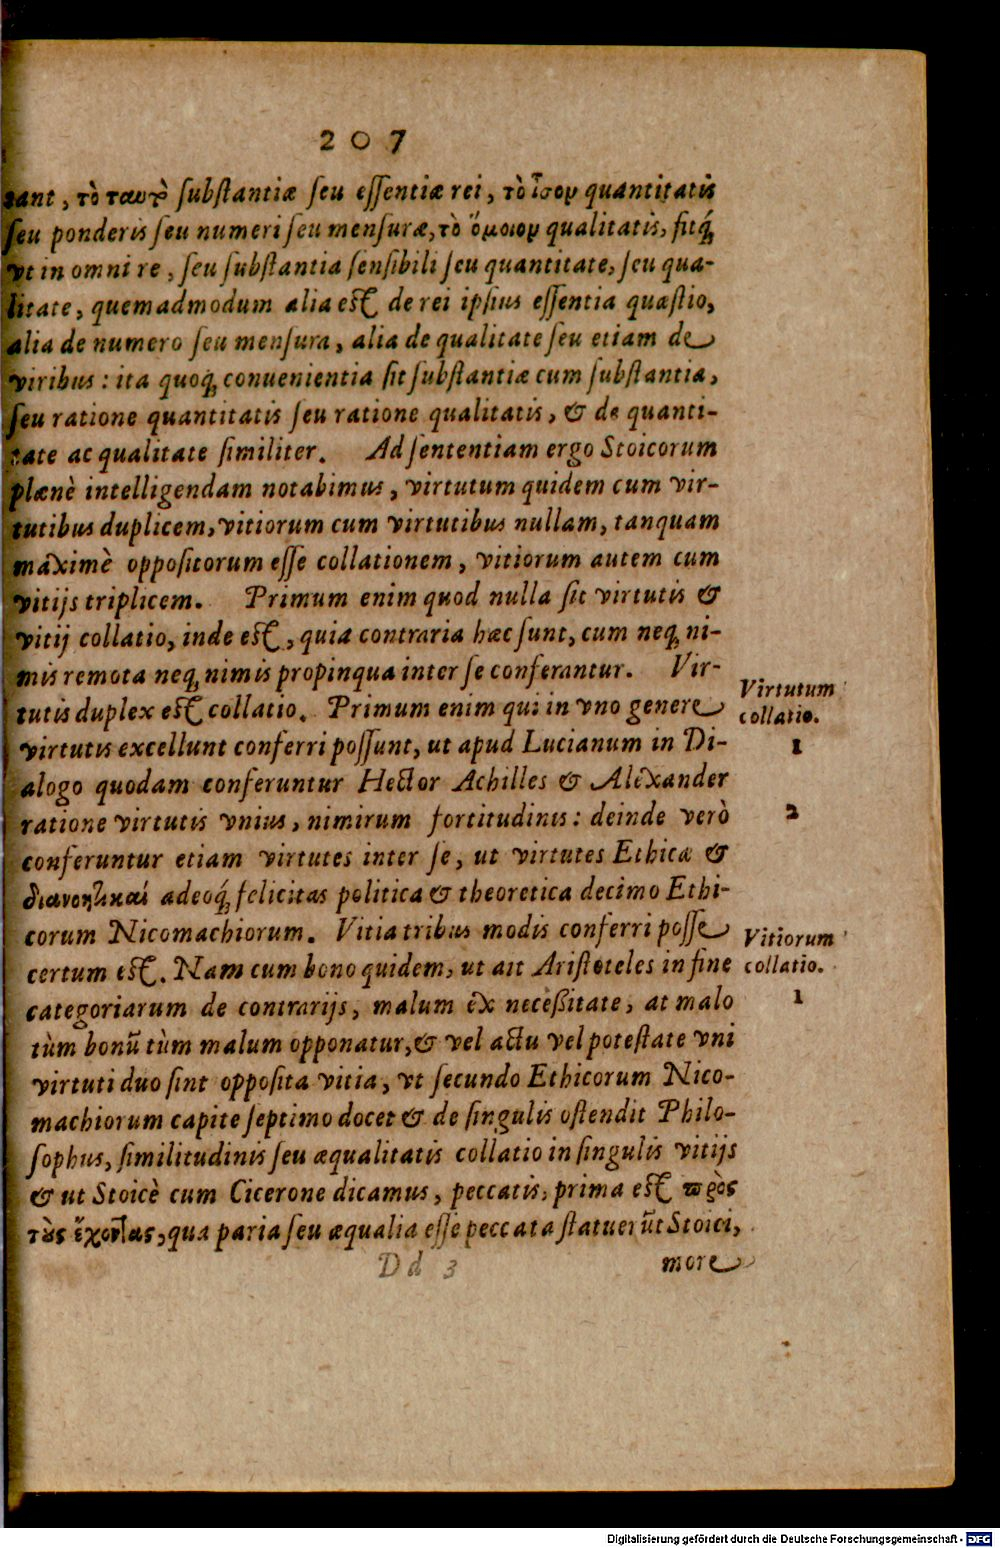 207
tant, τὸ ταυτὸ ſubſtantiæ ſeu eſſentiæ rei, τὸ ἶσον quantitatis
ſeu ponderis ſeu numeri ſeu menſuræ, τὸ ὅμοιον qualitatis, fitq́;
vt in omni re, ſeu ſubſtantia ſenſibili ſeu quantitate, ſeu qua-
litate, quemadmodum alia eſt de rei ipſius eſſentia quæſtio,
alia de numero ſeu menſura, alia de qualitate ſeu etiam de
viribus: ita quoq; conuenientia ſit ſubſtantiæ cum ſubſtantia,
ſeu ratione quantitatis ſeu ratione qualitatis, & de quanti-
tate ac qualitate ſimiliter. Ad ſententiam ergo Stoicorum
plænè intelligendam notabimus, virtutum quidem cum vir-
tutibus duplicem, vitiorum cum virtutibus nullam, tanquam
maximè oppoſitorum eſſe collationem, vitiorum autem cum
vitijs triplicem. Primum enim quod nulla ſit virtutis &
vitij collatio, inde eſt, quia contraria hæc ſunt, cum neq; ni-
mis remota neq; nimis propinqua inter ſe conferantur. Vir-
tutis duplex eſt collatio. Primum enim qui in vno genere
virtutis excellunt conferri poſſunt, ut apud Lucianum in Di-
alogo quodam conferuntur Hector Achilles & Alexander
ratione virtutis vnius, nimirum fortitudinis: deinde verò
conferuntur etiam virtutes inter ſe, ut virtutes Ethicæ &
διανοητικαί adeoq́; felicitas politica & theoretica decimo Ethi-
corum Nicomachiorum. Vitia tribus modis conferri poſſe
certum eſt. Nam cum bono quidem, ut ait Ariſtoteles in fine
categoriarum de contrarijs, malum ex neceßitate, at malo
tùm bonũ tùm malum opponatur, & vel actu vel poteſtate vni
virtuti duo ſint oppoſita vitia, vt ſecundo Ethicorum Nico-
machiorum capite ſeptimo docet & de ſingulis oſtendit Philo-
ſophus, ſimilitudinis ſeu æqualitatis collatio in ſingulis vitijs
& ut Stoicè cum Cicerone dicamus, peccatis, prima eſt πρὸς
τὰς ἔχοντας, qua paria ſeu æqualia eſſe peccata ſtatuerũt Stoici,
Dd 3 more
Virtutum
collatio.
1
2
Vitiorum
collatio.
1
Digitalisierung gefördert durch die Deutsche Forschungsgemeinschaft - DFG